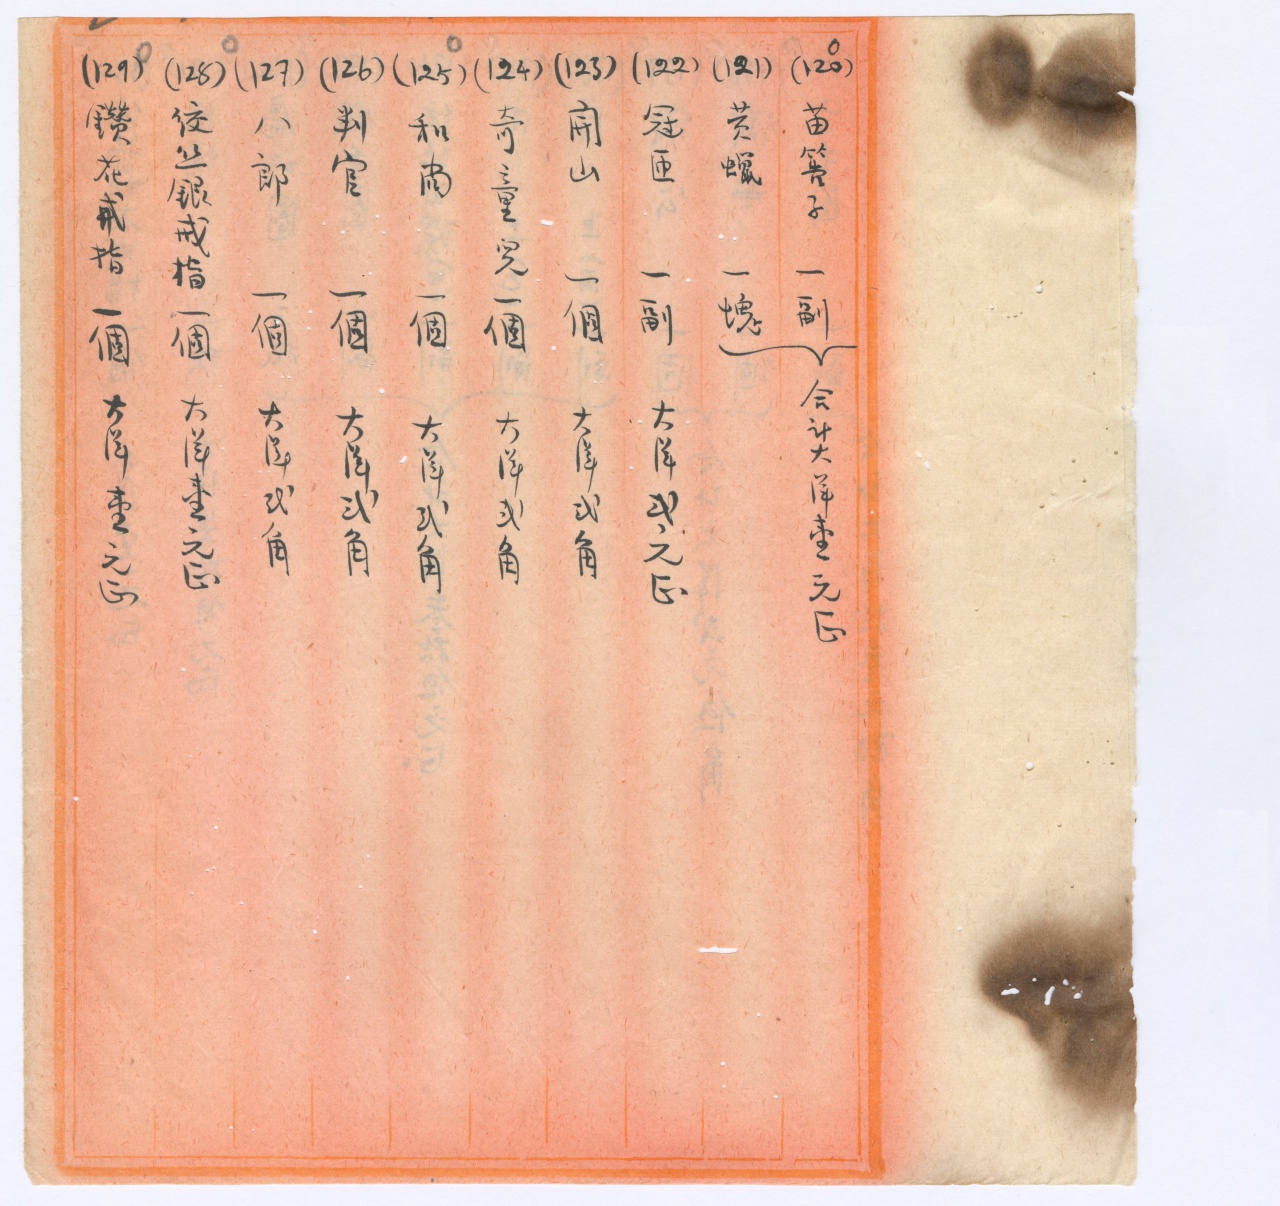 (120) 苗筶子 一副
(121) 黄蠟 一塊
合計大洋壹元正
(122) 冠匝 一副 大洋弍元正
(123) 開山 一個 大洋弍角
(124) 奇童児 一個 大洋弍角
(125) 和尚 一個 大洋弍角
(126) 判官 一個 大洋弍角
(127) 八郎 一個 大洋弍角
(128) 绞丝銀戒指 一個 大洋壹元正
(129) 鑽花戒指 一個 大洋壹元正